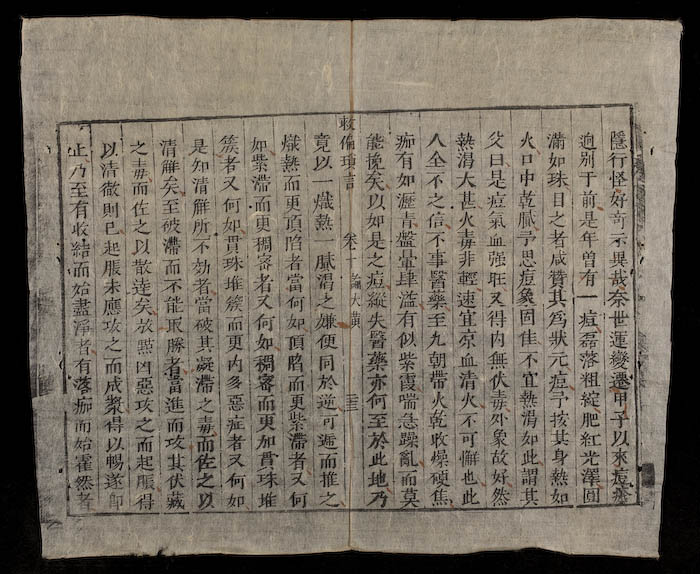 隱行怪好奇示異哉奈世運變遷甲子以來痘瘡
迥别于前是年曾有一痘磊落粗綻肥紅光澤圓
滿如珠目之者咸贊其爲狀元痘予按其身熱如
火口中乾膩予思痘象固佳不宜熱渴如此謂其
父曰是痘氣血强旺又得内無伏毒外象故好然
熱渴大甚火毒非輕速宜凉血清火不可懈也此
人全不之信不事醫藥至九朝帶火乾收燥硬焦
痂有如瀝青盤暈肆溢有似紫霞喘急躁亂而莫
能挽矣以如是之痘縱失醫藥亦何至於此地乃
救偏瑣言 卷十 論大黄
竟以一熾熱一膩渴之嫌便同於逆可遞而推之
熾熱而更頂陷者當何如頂陷而更紫滯者又何
如紫滯而更稠密者又何如稠密而更加貫珠堆
簇者又何如貫珠堆簇而更内多惡症者又何如
是知清解所不効者當破其凝滯之毒而佐之以
清解矣至破滯而不能取勝者當進而攻其伏藏
之毒而佐之以散逹矣故㷔凶惡攻之而起脹得
以清徹則已起脹未應攻之而成漿得以暢遂即
止乃至有收結而始盡淨者有落痂而始霍然者